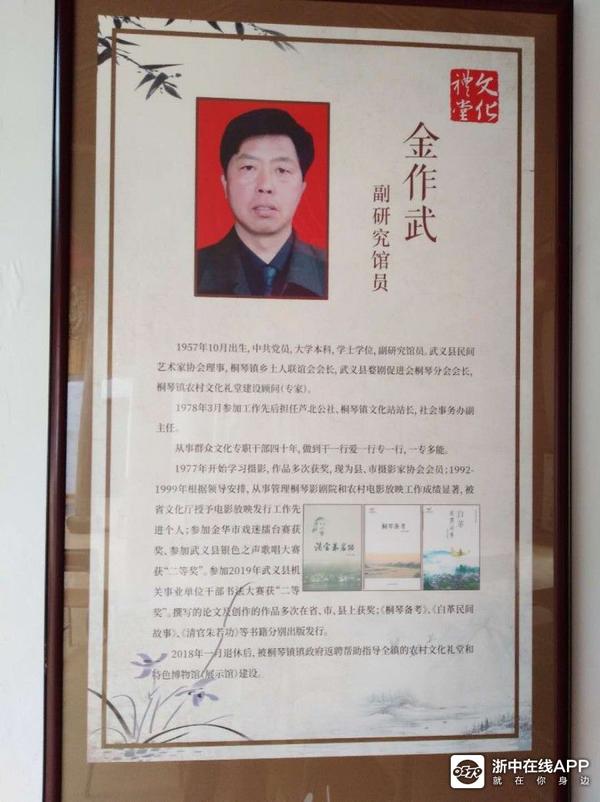 文化
禮堂
金作武
副研究馆员
1957年10月出生,中共党员,大学本科,学士学位,副研究馆员。武义县民间
艺术家协会理事,桐琴镇乡土人联谊会会长,武义县婺剧促进会桐琴分会会长,
桐琴镇农村文化礼堂建设顾问(专家)。
1978年3月参加工作先后担任芦北公社、桐琴镇文化站站长,社会事务办副
主任。
从事群众文化专职干部四十年,做到干一行爱一行专一行,一专多能。
1977年开始学习摄影,作品多次获奖,现为县、市摄影家协会会员;1992-
1999年根据领导安排,从事管理桐琴影剧院和农村电影放映工作成绩显著,被
省文化厅授予电影放映发行工作先
进个人;参加金华市戏迷擂台赛获
奖、参加武义县银色之声歌唱大赛
获“二等奖”。参加2019年武义县机
关事业单位干部书法大赛获“二等
奖”。撰写的论文及创作的作品多次在省、市、县上获奖;《桐琴备考》、《白革民间
故事》、《清官朱若功》等书籍分别出版发行。
2018年一月退休后,被桐琴镇镇政府返聘帮助指导全镇的农村文化礼堂和
特色博物馆(展示馆)建设。
清官朱若功
桐琴备考
白革
民间故事
浙中在线APP
就在你身边